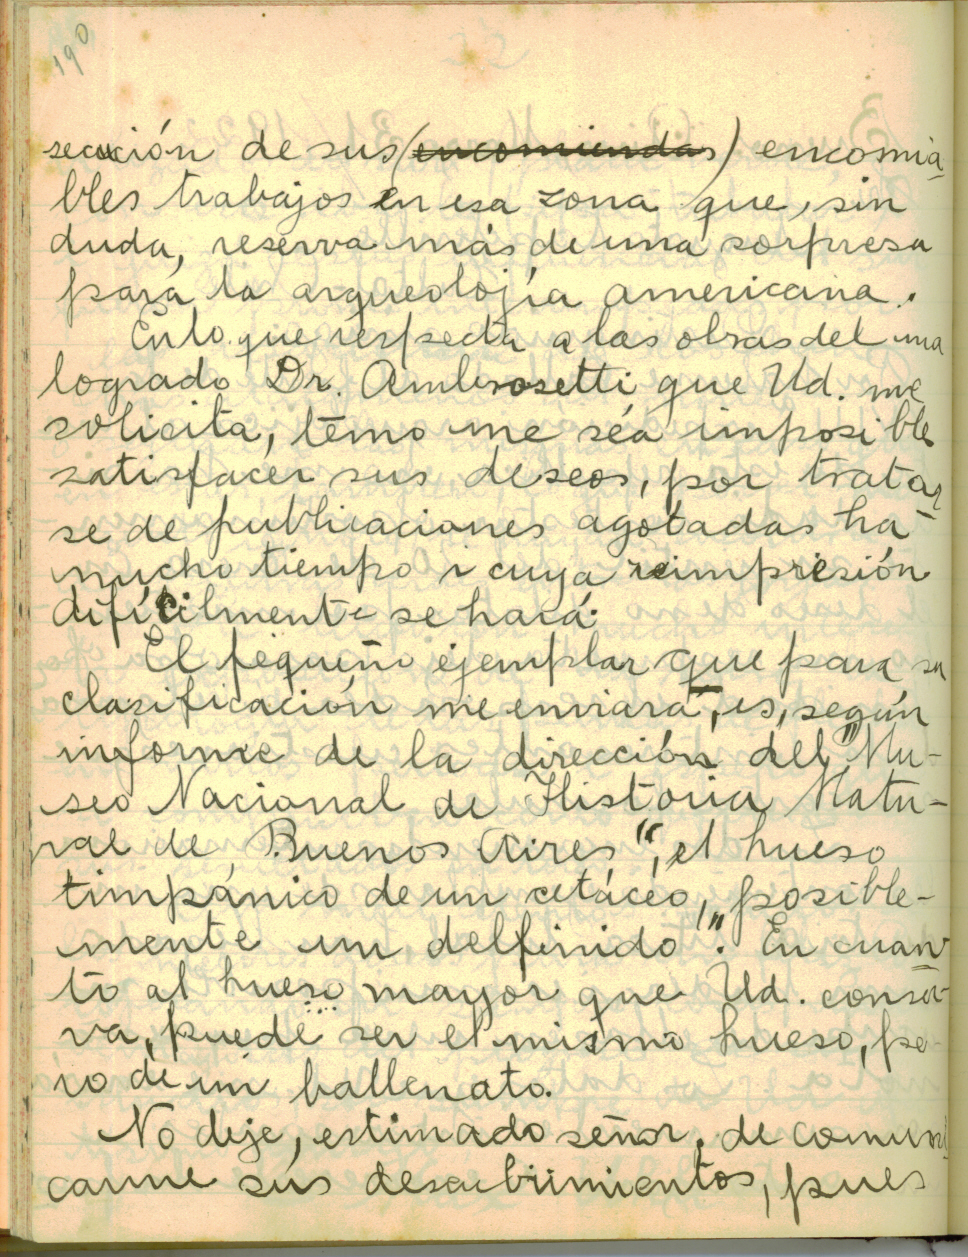 190
secución de sus (encomiendas) encomia-
bles trabajos en esa zona que, sin
duda, reserva más de una sorpresa
para la arqueolojía americana.
En lo que respecta a las obras del ma
logrado Dr. Ambrosetti que Ud. me
solicita, temo me séa imposible
satisfacer sus deseos, por tratar-
se de publicaciones agotadas ha-
mucho tiempo i cuya reimpresión
difícilmente se hará.
El pequeño ejemplar que para su
clasificación me enviara, es, según
informe de la dirección del "Mu-
seo Nacional de Historia Natu-
ral de Buenos Aires", "el hueso
timpánico de un cetáceo, posible-
mente un delfinido". En cuan-
to al hueso mayor que Ud. conser-
va, puede ser el mismo hueso, pe-
ro de un ballenato.
No deje, estimado señor, de comuni
carme sus descubrimientos, pues